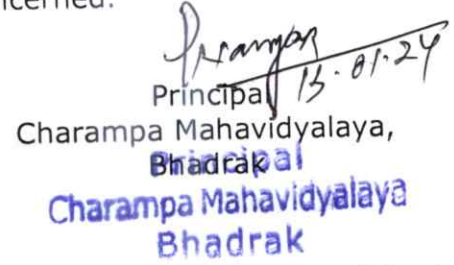 cerned.
13.01.24
Principal
Charampa Mahavidyalaya,
Bhadrak
Principal
Charampa Mahavidyalaya
Bhadrak